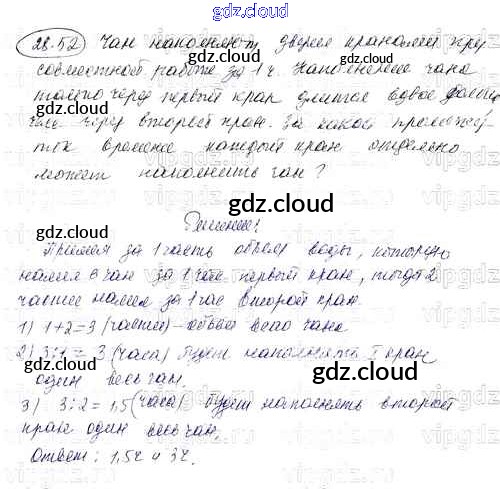 gdz.cloud
28.52 Чан наполняют двумя кранами при
совместной работе за 1 ч. Наполнение чана
только через первый кран длится вдвое дольше
чем через второй кран. За какой промежу-
ток времени каждый кран отдельно
может наполнить чан?
gdz.cloud
Решение
Примем за 1 часть объем воды, которую
налил в чан за 1 час первый кран, тогда 2
части налил за 1 час второй кран
1) 1+2=3 (части) – объем всего чана
2) 3:1=3 (часа) будет наполнять I кран
один весь чан.
3) 3:2=1,5 (часа) будет наполнять второй
кран один весь чан.
Ответ: 1,5ч и 3ч.
gdz.cloud